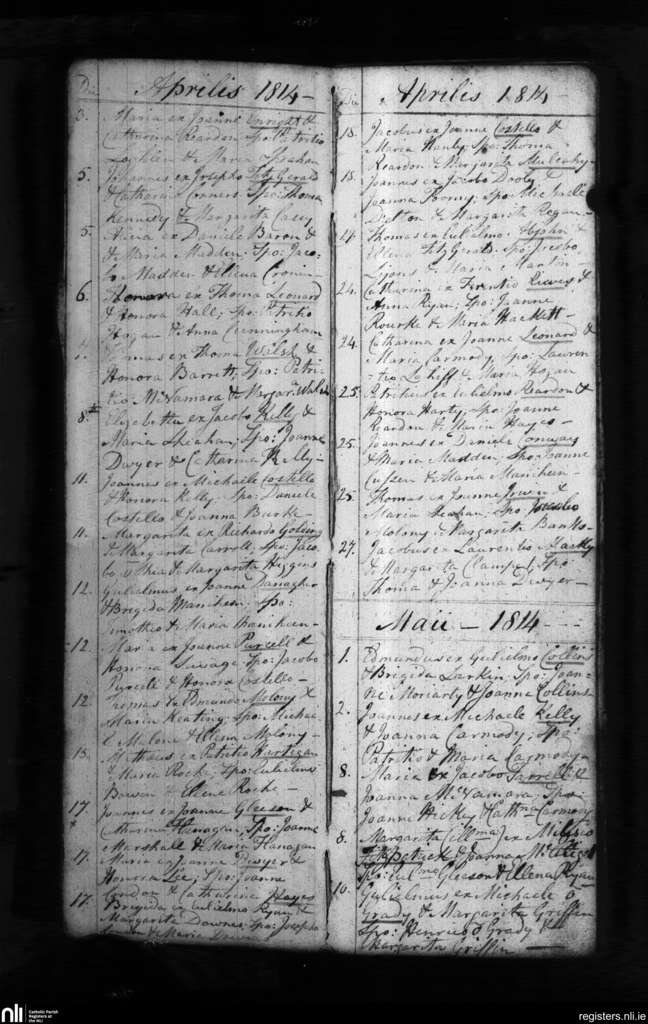 Di: Aprilis 1814 -
3. Maria ex Joanne Enright &
Catharina Reardon Spo: Patritio
Loghlen & Maria
5. Johannes ex Josepho FitzGerald
& Catharina Connors Spo: Thoma
Kennedy & Margarita Casey
5. Alicia ex Daniele Baron &
& Maria Madden, Spo: Jaco-
bo Madden & Elena Cronin
6. Honora ex Thoma Leonard
& Honora Hall; Spo: Patritio
Hogan & Anna Cunningham
Thomas ex Thoma Welsh &
Honora Barrett, Spo: Patri-
tio McNamara & Margar: Walsh
8th Elizabetha ex Jacobo Kelly &
Maria Shiahan; Spo: Joanne
Dwyer & Catharina Kelly-
11. Joannes ex Michaele Costello
& Honora Kelly, Spo: Daniele
Costello & Joanna Burke-
11. Margarita ex Richardo
& Margarita Carroll, Spo: Jaco-
bo O Shea & Margarita Higgins
12. Gulielmus ex Joanne Danagher
& Brigida Mancheen; Spo:
Timotheo & Maria Mancheen-
12. Maria ex Joanne Purcell &
Honora Savage Spo: Jacobo
Purcell & Honora Costello-
12. Thomas ex Edmundo Molony &
Maria Keating; Spo: Michae-
le & Elena Molony-
13. Mattheus ex Patritio Hartigan
& Maria Roche, Spo: Gulielmo
Bowen & Elene Roche-
17. Joannes ex Joanne Gleeson &
Catharina Flanagan, Spo: Joanne
Marshall & Maria Flanagan
17. Maria ex Joanne Dwyer &
Honora Lee; Spo: Joanne
& Catharina Hayes
17. Brigida ex Gulielmo Ryan &
Margarita Downes, Spo: Josepho
& Maria
Die Aprilis 1814
18. Jacobus ex Joanne Costello &
Maria Hanly, Spo: Thoma
Reardon & Margarita Mulcahy-
18. Joannes ex Jacobo &
Joanna Spo: Michaele
& Margarita Regan-
19. Thomas ex Gulielmo &
Elena FitzGerald. Spo: Jacobo
Lyons & Maria Martin-
24. Catharina ex Terentio Reeves &
Anna Ryan; Spo: Joanne
Rourke & Maria Hackett-
24. Catharina ex Joanne Leonard &
Maria Carmody, Spo: Lauren-
tio Lahiff & Maria Hogan
25. Patritius ex Gulielmo Reardon &
Honora Harty, Spo: Joanne
Reardon & Maria Hayes-
25. Joannes ex Daniele Conway
& Maria Madden, Spo: Joanne
Cussen & Maria Mancheen-
25. Thomas ex Joanne &
Maria Spo: Jacobo
Molony & Margarita Banks-
27. Jacobus ex Laurentio
& Margarita Spo:
Thoma & Joanna Dwyer-
Maii - 1814
1. Edmundus ex Gulielmo Collins
& Brigida Larkin, Spo: Joan-
ne Moriarty & Joanna Collins
2. Joannes ex Michaele Kelly
& Joanna Carmody; Spo:
Patritio & Maria Carmody-
8. Maria ex Jacobo Farrell &
Joanna McNamara, Spo:
Joanne Hickey & Cathna Carmody
8. Margarita ex
FitzPatrick & Joanna
Spo: Gulme Gleeson & Elena Ryan
10. Gulielmus ex Michaele O
Grady, & Margarita Griffin
Spo: Henrico O Grady &
Margarita Griffin -
nli
Catholic Parish
Registers at
the NLI
registers.nli.ie